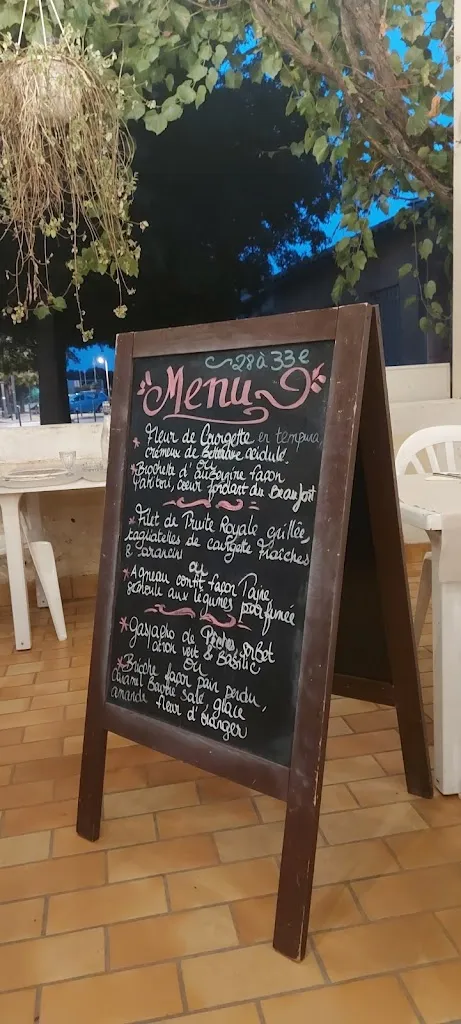 28 à 33€
Menu
* Fleur de Courgette en tempura,
crémeux de acidulé.
ou
* Brochette d'aubergine façon
, cœur fondant du Beaufort
* Filet de Truite Royale grillée,
tagliatelles de courgette fraîches
& Sarrasin
ou
* Agneau confit façon Tajine
semoule aux légumes parfumée
* Gaspacho de sorbet
citron vert & Basilic
ou
* Brioche façon pain perdu,
caramel Beurre salé, glace
amande fleur d'oranger